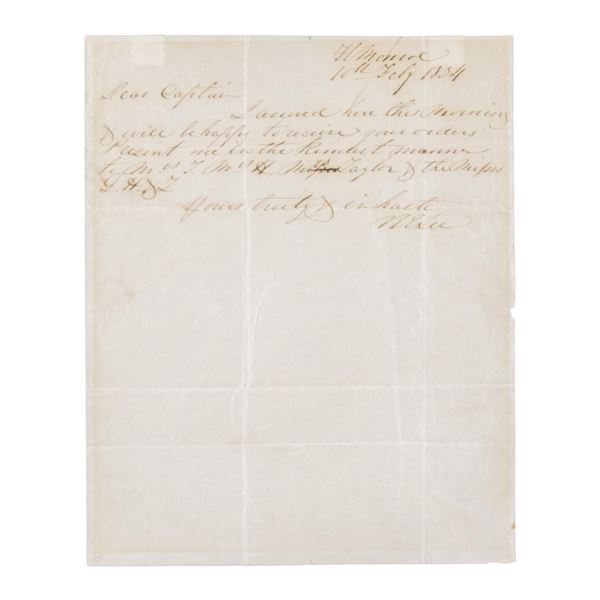 Ft Monroe
10th Feby 1834
Dear Captain
I arrived here this morning
& will be happy to receive your orders
Present me in the kindest manner
to Mrs T. Mrs H. Taylor & the Misses
L. H. & T
Yours truly & in haste
R E Lee